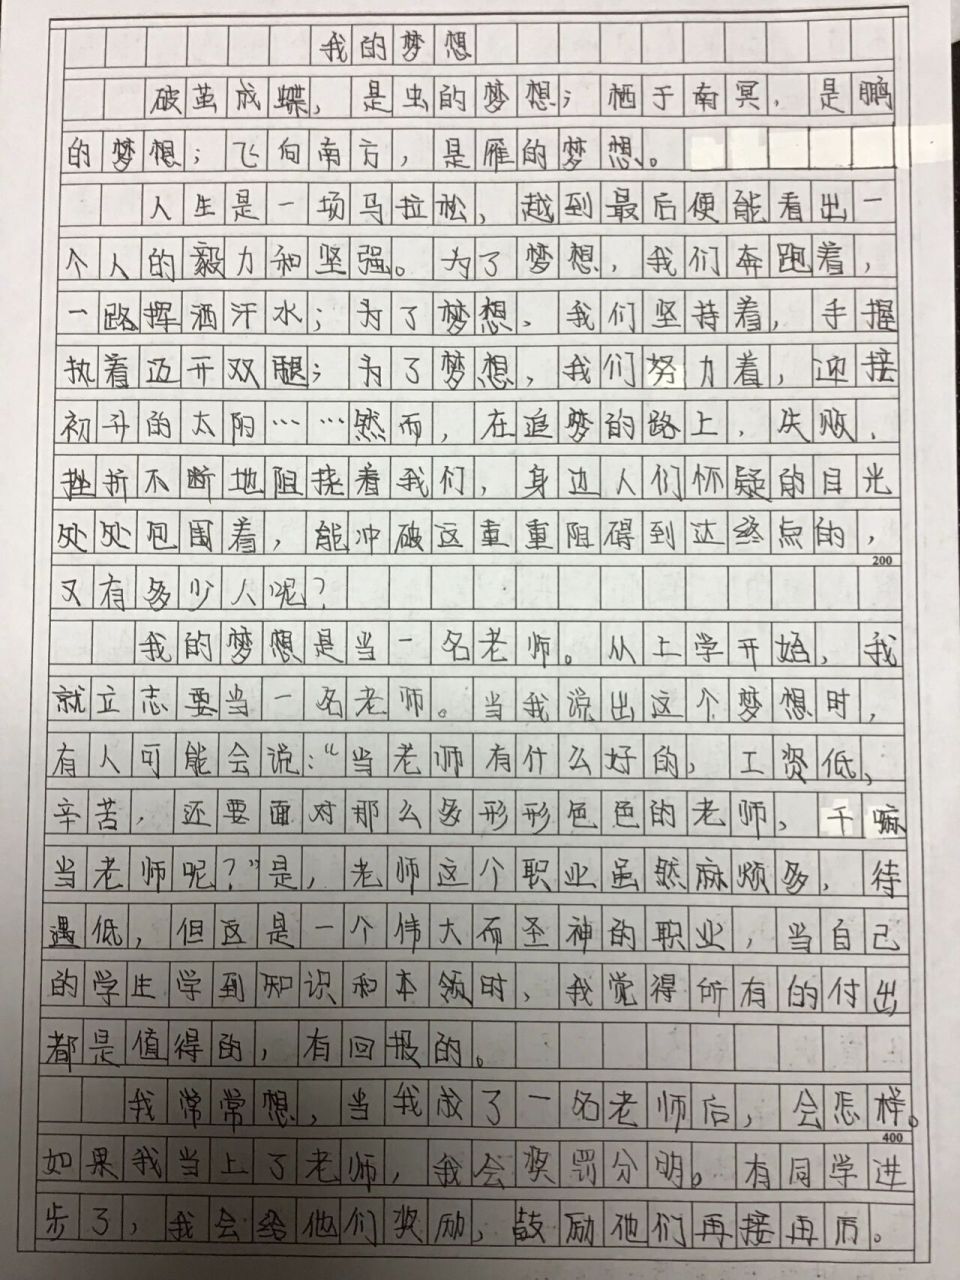 我的梦想
破茧成蝶，是虫的梦想；栖于南冥，是鹏
的梦想；飞向南方，是雁的梦想。
人生是一场马拉松，越到最后便能看出一
个人的毅力和坚强。为了梦想，我们奔跑着，
一路挥洒汗水；为了梦想，我们坚持着，手握
执着迈开双腿；为了梦想，我们努力着，迎接
初升的太阳……然而，在追梦的路上，失败、
挫折不断地阻挠着我们，身边人们怀疑的目光
处处包围着，能冲破这重重阻碍到达终点的，
200
又有多少人呢？
我的梦想是当一名老师。从上学开始，我
就立志要当一名老师。当我说出这个梦想时，
有人可能会说：“当老师有什么好的，工资低，
辛苦，还要面对那么多形形色色的老师，干嘛
当老师呢？”是，老师这个职业虽然麻烦多，待
遇低，但这是一个伟大而圣神的职业，当自己
的学生学到知识和本领时，我觉得所有的付出
都是值得的，有回报的。
我常常想，当我成了一名老师后，会怎样。
400
如果我当上了老师，我会奖罚分明。有同学进
步了，我会给他们奖励，鼓励他们再接再厉。